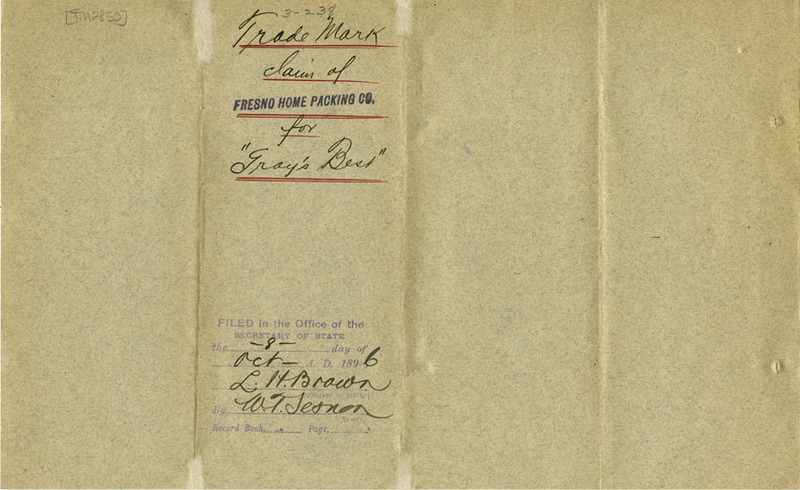 [TM2852]
3-238
Trade Mark
claim of
FRESNO HOME PACKING CO.
for
"Gray's Best"
FILED in the Office of the
SECRETARY OF STATE
the -8- day of
Oct- A. D. 1896
L. H. Brown
By W. T. Sesnon
Record Book, Page,